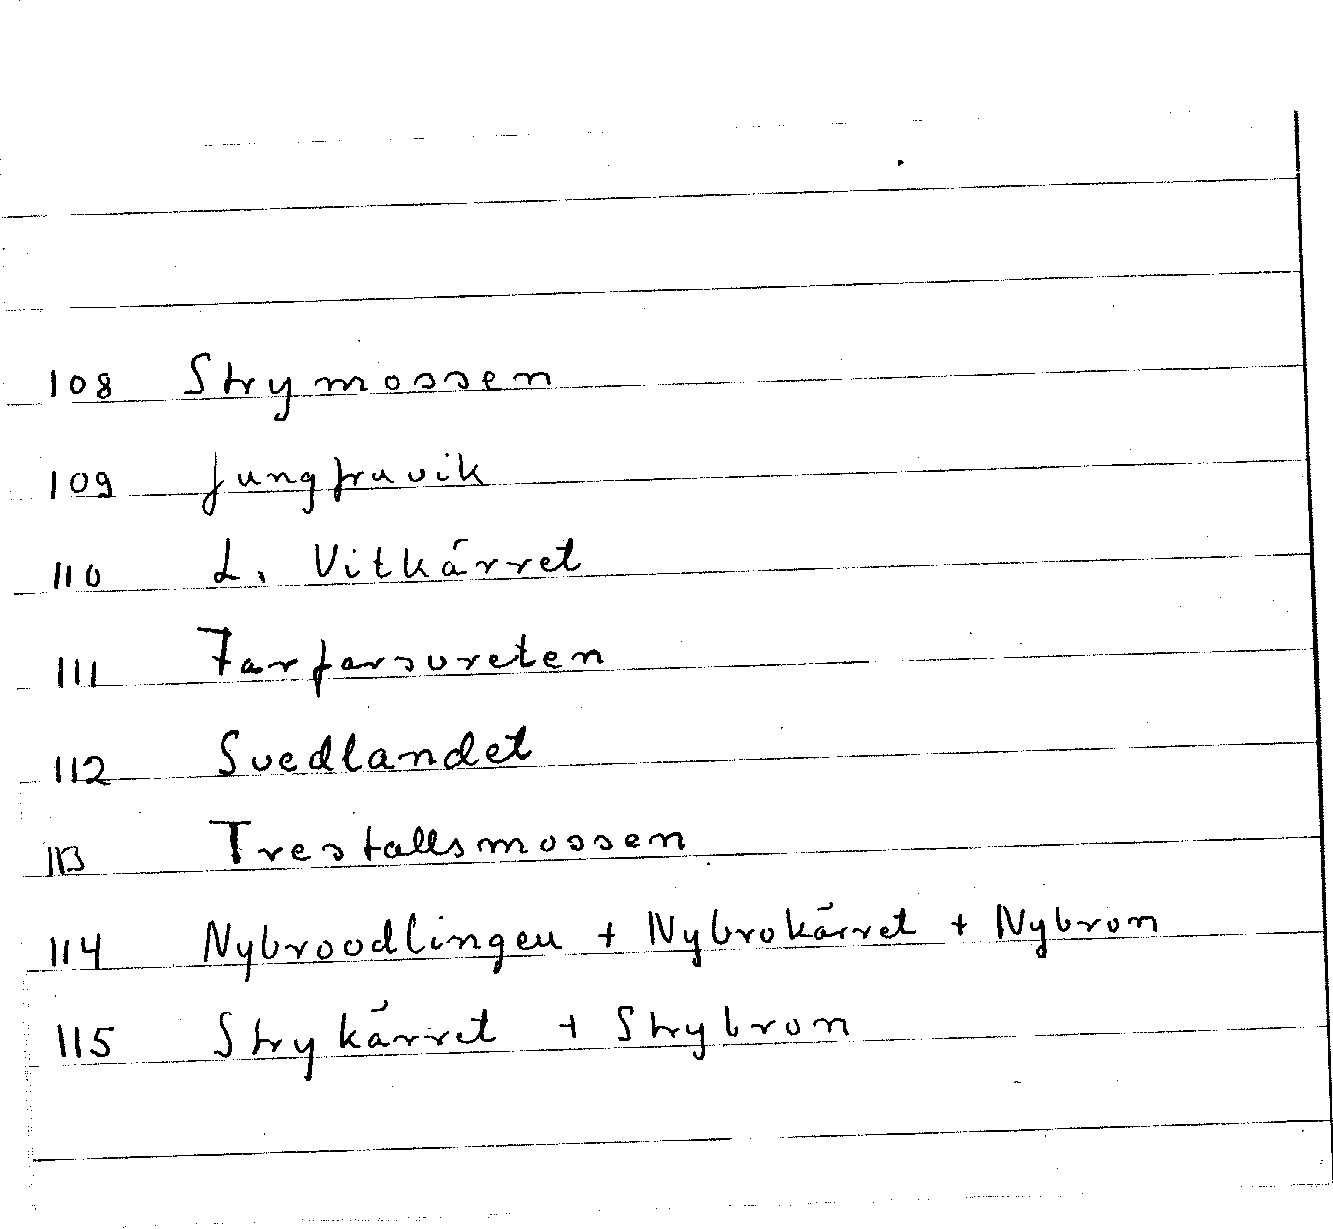 108 Strymossen
109 Jungfruvik
110 L. Vitkärret
111 Farfarsvreten
112 Svedlandet
113 Trestallsmossen
114 Nybroodlingen + Nybrokärret + Nybron
115 Strykärret + Strybron